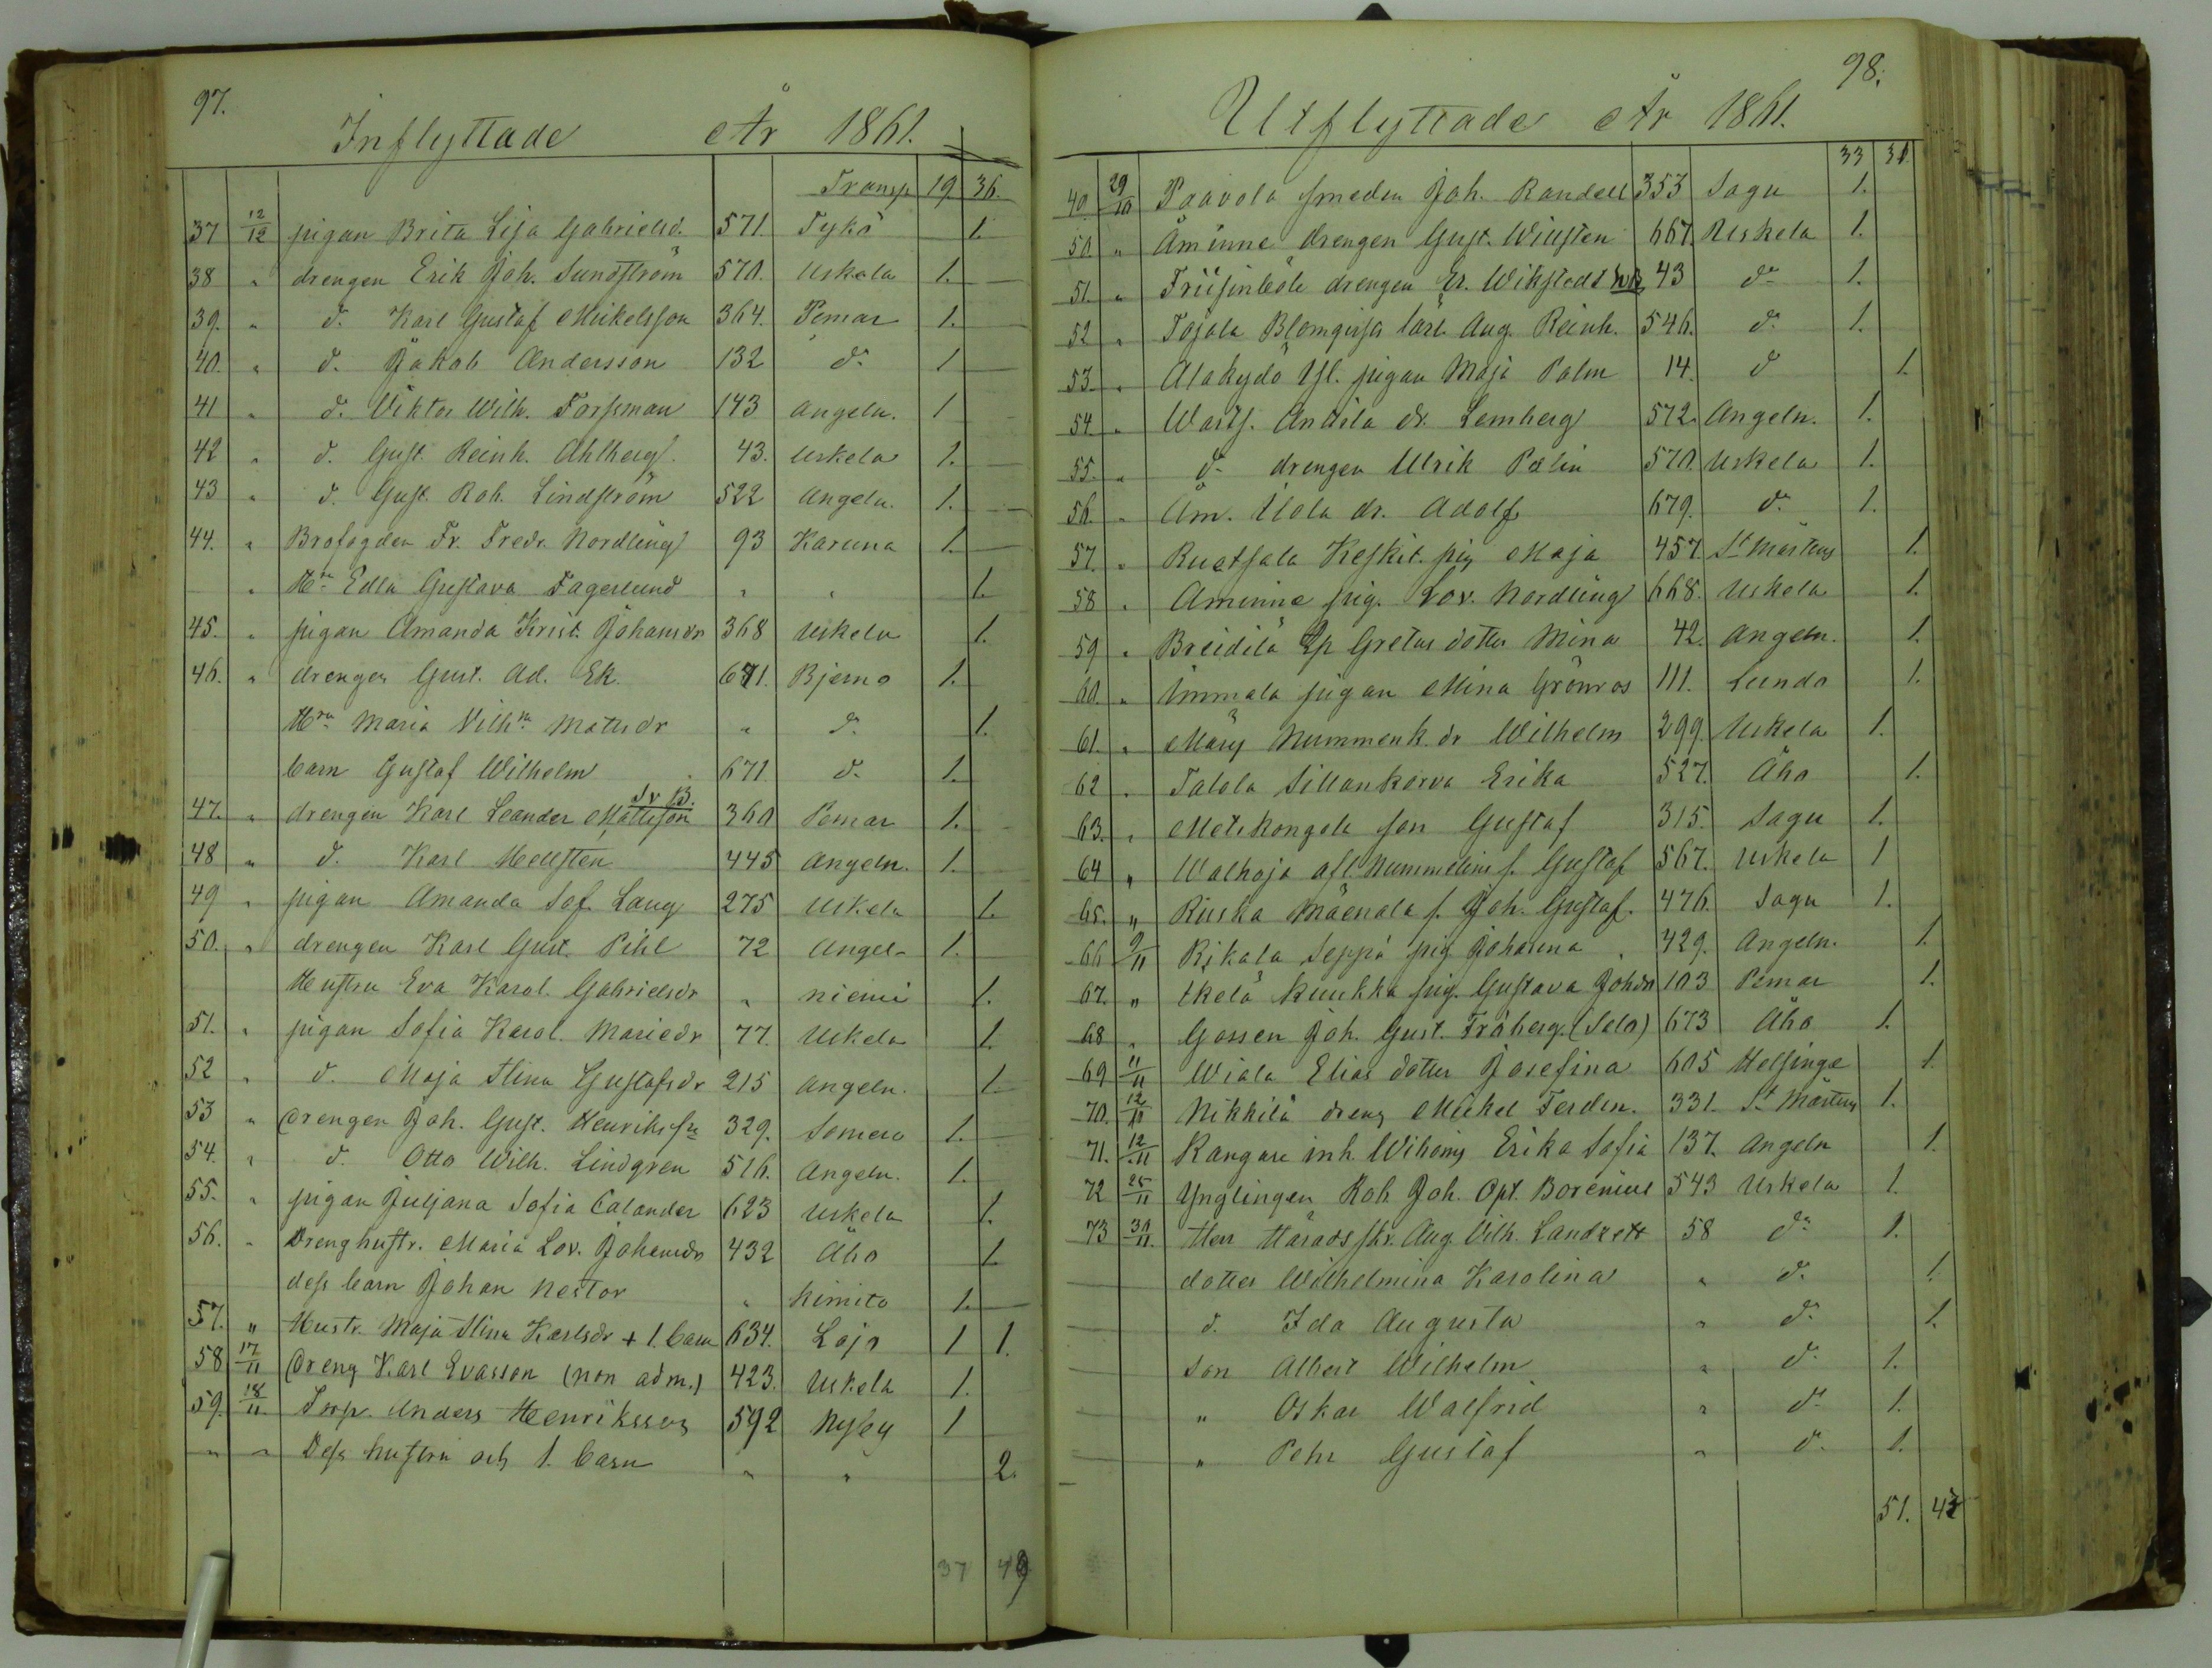 97.
Inflyttade År 1861.
Transp 19 36.
37 12/12 pigan Brita Lisa Gabrielsd. 571. Tykö 1.
38 " drengen Erik Joh. Sundström 570. Uskela 1.
39. " d. Karl Gustaf Mickelsson 364. Pemar 1.
40. " d. Jakob Andersson 132 do 1
41 " d. Viktor Wilh. Forssman 143 Angeln. 1
42 " d. Gust. Reinh. Ahlberg 43. Uskela 1.
43 " d. Gust. Rob. Lindström 522 Angeln. 1.
44. " Brofogden Fr. Fredr. Nordling 93 Karuna 1.
" Hru Edla Gustava Fagerlund " " 1.
45. " pigan Amanda Krist. Johansdr 368 Uskela 1.
46. " drengen Gust. Ad. Ek. 671. Bjerno 1.
Hru Maria Vilhna Matsdr " do 1.
barn Gustaf Wilhelm 671 d. 1.
47. " drengen Karl Leander Mattsson 360 Pemar 1.
48 " d. Karl Hellsten 445 Angeln. 1.
49 " pigan Amanda Sof. Lang 275 Uskela 1.
50. " drengen Karl Gust. Pihl 72 Angel- 1.
Hustru Eva Karol. Gabrielsdr " niemi 1.
51. " pigan Sofia Karol. Mariedr 77. Uskela 1.
52 " d. Maja Stina Gustafsdr 215 Angeln. 1.
53 " drengen Joh. Gust. Henrikssn 329. Somero 1.
54. " d. Otto Wilh. Lindgren 516. Angeln. 1.
55. " pigan Juljana Sofia Calander 623 Uskela 1.
56. " Drenghustr. Maria Lov. Johansdr 432 Åbo 1.
dess barn Johan Nestor " Kimito 1.
57. " Hustr. Maja Stina Karlsdr + 1. barn 634. Lojo 1 1.
58 17/11 dreng Karl Evasson (non adm.) 423. Uskela 1.
59. 18/11. Torp. Anders Henriksson 592 Nyby 1
" " Dess hustru och 1. barn " " 2.
37 49
98.
Utflyttade År 1861.
33 31.
29/10 Paavola smeden Joh. Randell 353 Sagu 1.
50. " Åminne drengen Gust. Willsten 667. Uskela 1.
51. " drengen Er. Wikstedt 43 do 1.
52 " Tojola Karl Aug. Reinh. 546. do 1.
53. " Alakydö Yl. pigan Maja Palm 14. d 1.
54. " Anttila dr. Lemberg 572. Angeln. 1.
55. " d- drengen Ulrik Palin 570. Uskela 1.
56. " Åm. Uola dr. Adolf 679. do 1.
57. " Ruotsala Keskit. pig Maja 457. St Mårtens 1.
58 " Åminne pig. Lov. Nordling 668. Uskela 1.
59 " Breidilä Gretas dotter Mina 42. Angeln. 1.
60. " Ummala pigan Mina Grönros 111. Lundo 1.
61. " Nummenk. dr Wilhelm 299. Uskela 1.
62 " Talola Sillankorva Erika 527. Åbo 1.
63. " son Gustaf 315. Sagu 1.
64 " Walhoja Nummelins s. Gustaf 567. Uskela 1
65. " Ruska Mäenala s. Joh. Gustaf. 476. Sagu 1.
66 9/11 Rikala Seppä pig Johanna 429. Angeln. 1.
67. " Ikelä Kuukka pig. Gustava Johdr 103 Pemar 1.
68 " Gossen Joh. Gust. Fröberg. (Salo) 673 Åbo 1.
69 11/11 Wiala Elias dotter Josefina 605 Helsinge 1.
70. 12/11 Nikkilä dreng Mickel Ferdin. 331. St Mårtens 1.
71. 12/11 Kangare inh. Erika Sofia 137. Angeln 1.
72 25/11 Ynglingen Rob. Joh. Opt. Borenius 543 Uskela 1.
73 30/11. Herr Häradsskr. Aug. Vilh. Landzett 58 do 1.
dotter Wilhelmina Karolina " d. 1.
d. Ida Augusta " do 1.
son Albert Wilhelm " d. 1.
" Oskar Walfrid " do 1.
" Pehr Gustaf " d. 1.
51. 43